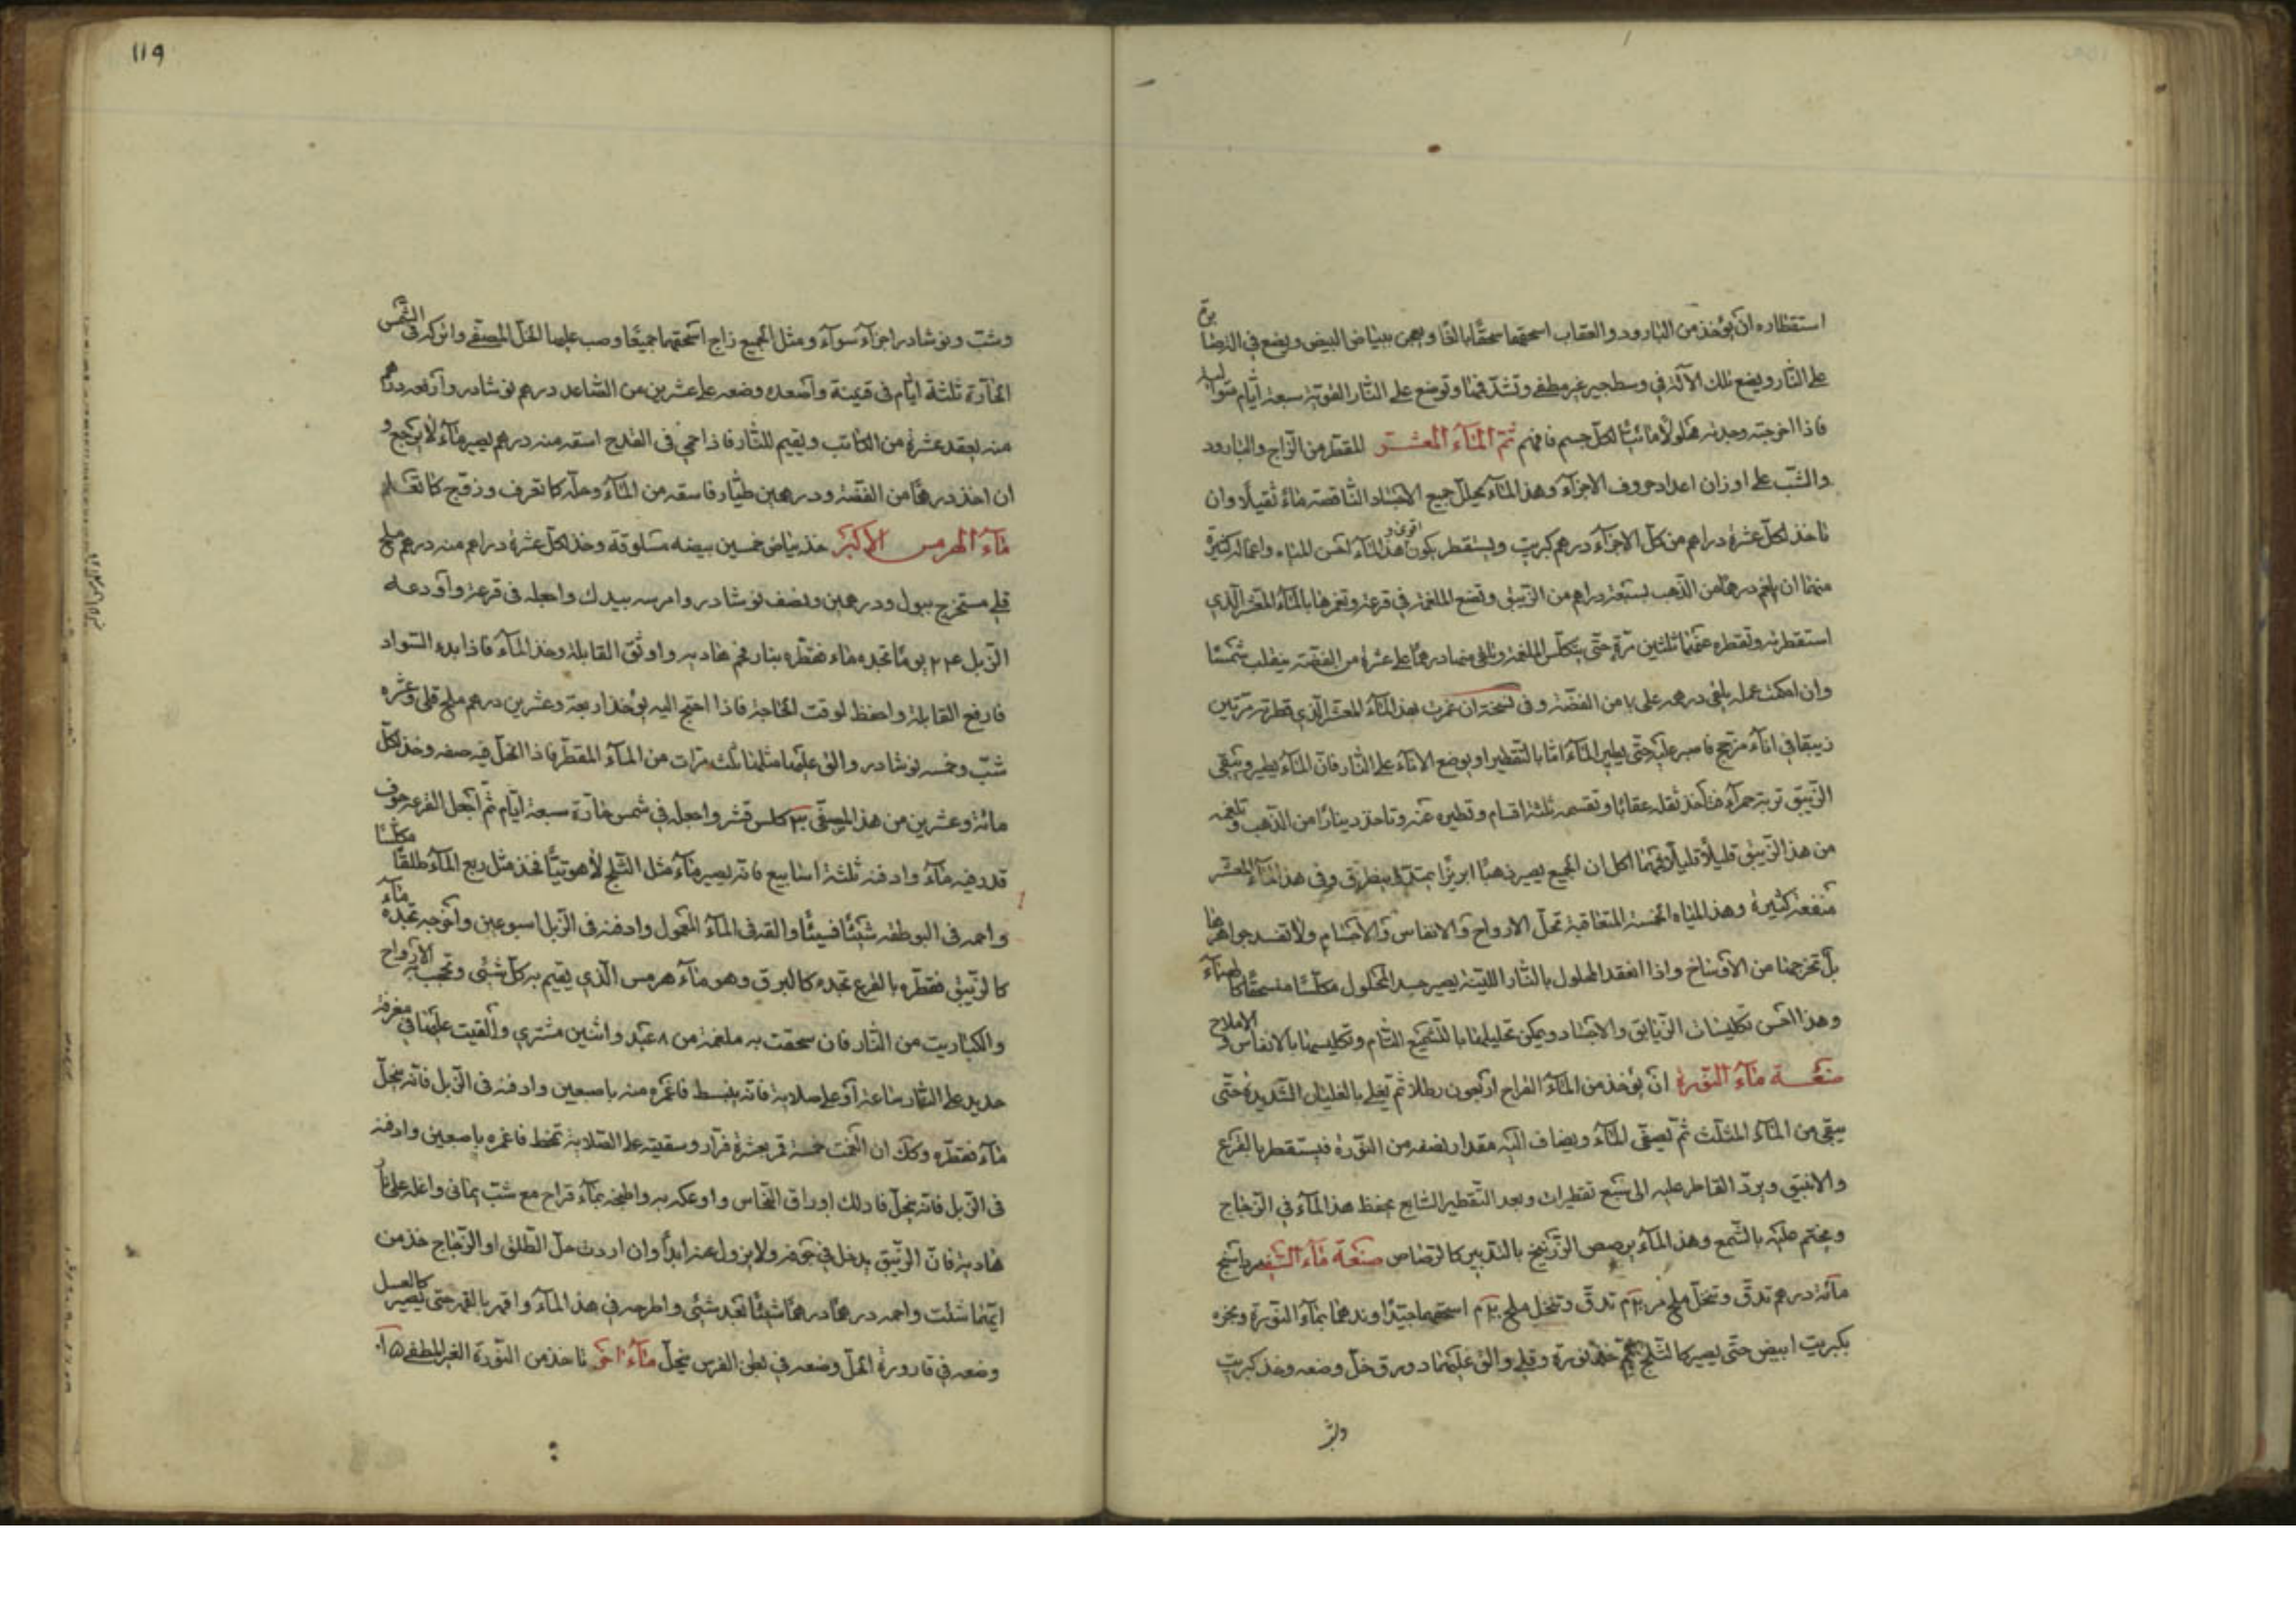 استقطاره ان يؤخذ من البارود والعقاب اسحقهما سحقًا بالغًا ويعجن ببياض البيض ويضع في
على النار ويضع تلك الآلة في وسط جير غير مطفى وتشدّ فمها وتوضع على النار القوية سبعة أيّام
فاذا اخرجته وجدته محلولًا مائيًّا لكل جسم فافهم ثمّ المآء المعشّر المقطر من الزّاج والبارود
والشّب على اوزان اعداد حروف الاجزآء وهذا المآء يحلل جميع الاجساد الناقصة مآءً ثقيلًا وان
تاخذ لكلّ عشرة دراهم من كلّ الاجزآء درهم كبريت ويستقطر يكون اقوى و هذا المآء احسن المياه واعماله كثيرة
منها ان يلغم درهمًا من الذّهب بسبعة دراهم من الزّيبق وتضع الملغمة في قرعة وتغمرها بالمآء المعشّر الّذي
استقطرته وتقطره عنها ثلثين مرّة حتّى يتكلّس الملغمة وتلقى منها درهمًا على عشرة من الفضّة ينقلب شمسًا
وان امكنت عمله يلقى درهم على من الفضّة وفى نسخة ان غمرت بهذا المآء المعشّر الّذي قطرته مرّتين
زيبقًا في انآء مزجج فاصبر عليه حتّى يطير المآء امّا بالتّقطير او بوضع الانآء على النّار فانّ المآء يطير ويبقى
الزّيبق تربة حمرآء فتأخذ ثقله عقابًا وتقسمه ثلثة اقسام وتطيره عنه وتاخذ دينارًا من الذّهب وتلغمه
من هذا الزّيبق قليلًا قليلًا ان الجميع يصير ذهبًا ابريزًا وفى هذا المآء المعشّر
منفعة كثيرة وهذا المياه الخمسة المتعاقبة تحلّ الارواح والانفاس والاجسام ولا تفسد جواهرها
بل تخرجها من الاوساخ واذا انعقد المحلول بالنّار اللينة يصير جسد المحلول مكلّسًا منسحقًا كالهبآء
وهذا احسن تكليسات الزّيابق والاجساد ويمكن تحليلها بالتّشميع التّام وتكليسها بالانفاس والاملاح
صنعة مآء النّورة ان يؤخذ من المآء القراح اربعون رطلا ثمّ يغلى بالغليان الشّديدة حتّى
يبقى من المآء المثلّث ثمّ يصفّى المآء ويضاف اليه مقدار نصفه من النّورة فيستقطر بالقرع
والانبيق ويردّ القاطر عليه الى سبع تقطيرات وبعد التّقطير السّابع يحفظ هذا المآء في الزّجاج
ويختم عليه بالشّمع وهذا المآء يرصص الزّرنيخ بالتّدبير كالرّصاص صنعة مآء
مائة درهم تدقّ وتنخل ملح تدقّ وتنخل ملح اسحقهما جيّدًا وندهما بمآء النّورة وبخره
بكبريت ابيض حتّى يصير كالثّلج نورة وقلي والق عليهما دورق خلّ وضعه وخذ كبريت
١١٩
وشبّ ونوشادر اجزآء سوآء ومثل الجميع زاج اسحقهما جميعًا وصب عليها الخلّ المصفّى واتركه في الشّمس
الحآرّة ثلثة ايّام في قنينة واصعده وضعه على عشرين من الصّاعد درهم نوشادر
منه يعقد عشرة من الكاتب ويقيم للنّار فاذا حمي فى القدح اسقه منه درهم يصير مآءً لا يرجع و
ان اخذ درهمًا من الفضّة ودرهمين طيّار فاسقه من المآء وحلّه كما تعرف وزوّج كما تعلم
مآء الهرمس الاكبر خذ بياض خمسين بيضه مسلوقة وخذ لكلّ عشرة دراهم منه درهم ملح
قلي مستخرج ببول ودرهمين ونصف نوشادر وامرسه بيدك واجعله فى قرعة واودعه
الزّبل ٢٤ يومًا تجده مآء فقطّره بنار فحم هادية واوثق القابلة وخذ المآء فاذا بدء السّواد
فارفع القابلة واحفظ لوقت الحاجة فاذا احتج اليه يؤخذ اربعة وعشرين درهم ملح قلى وعشره
شبّ وخمسه نوشادر والق عليها مثلها ثلث مرّات من المآء المقطّر فاذا انحلّ فيه صفه وخذ لكلّ
مائة وعشرين من هذا كلس قشر واجعله في شمس حآرّة سبعة ايّام ثمّ اجعل القرعه جوف
قدر فيه مآء وادفنه ثلثة اسابيع فانّه يصير مآء مثل الثّلج فخذ مثل ربع المآء طلقًا مكلّسًا
واحمه فى البوطقه شيئًا فسيئًا والقه فى المآء المعمول وادفنه فى الزّبل اسبوعين واخرجه تجده مآء
كالزّيبق فقطّره بالقرع تجده كالبرق وهو مآء هرمس الّذي يقيم به كلّ شئى وتحجبه الارواح
والكباريت من النّار فان سحقت به ملغمة من ٨ عبد واثنين مشتري والقيت عليها في مغرفة
حديد على النّار ساعة او على صلاية فانّه ينبسط فاغمره منه باصبعين وادفنه فى الزّبل فانّه ينحلّ
مآء فقطّره وكك ان الغمت خمسة قمر بعشرة فرّار وسقيته على الصّلاية فاغمره باصبعين وادفنه
فى الزّبل فانّه ينحلّ فادلك اوراق النّحاس واوعكه به واطبخه بمآء قراح مع شبّ يمانى واغله على نار
هادية فانّ الزّيبق يدخل في جوفه ولا يزول عنه ابدًا وان اردت حلّ الطّلق او الزّجاج خذ من
ايّهما شئت واحمه درهمًا درهمًا شيئًا بعد شئى واطرحه في هذا المآء واقهره بالقهر حتى يصير كالعسل
وضعه في قارورة الحلّ وضعه في بطن الفرس ينحلّ مآء اخر تاخذ من النّورة الغير المطفى ١٥